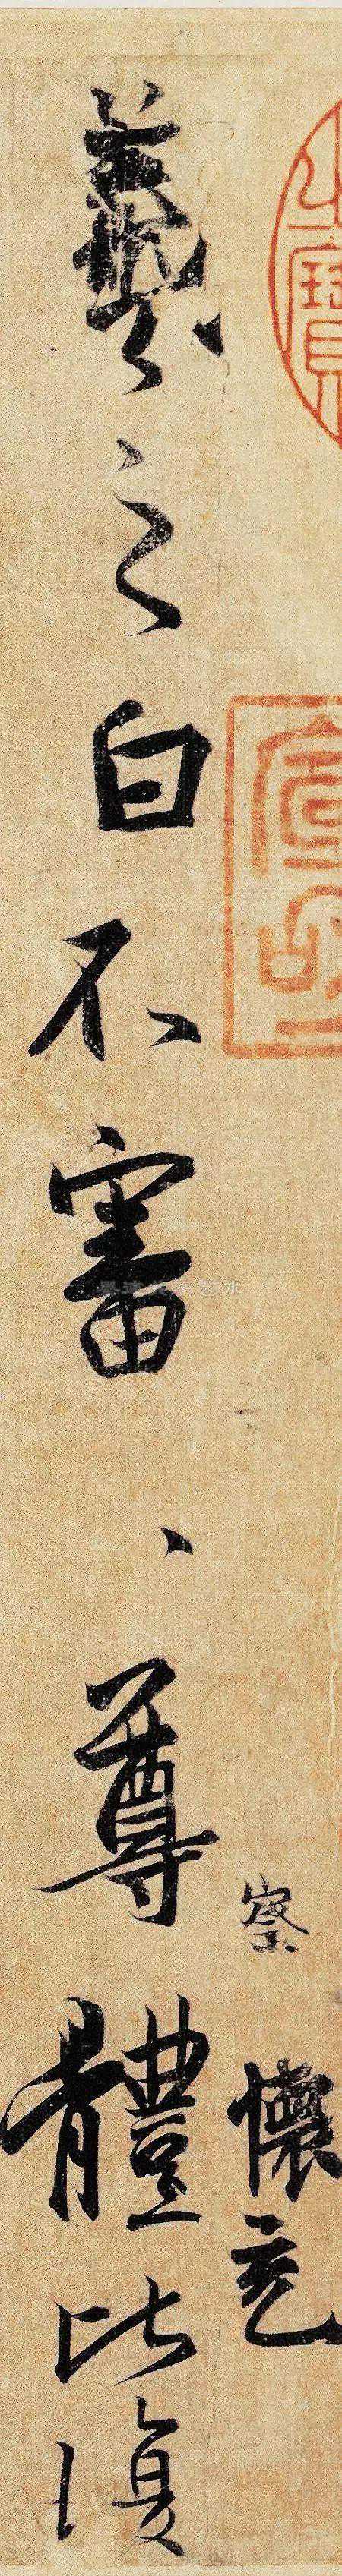 察 懷充
羲之白不審、尊體比復